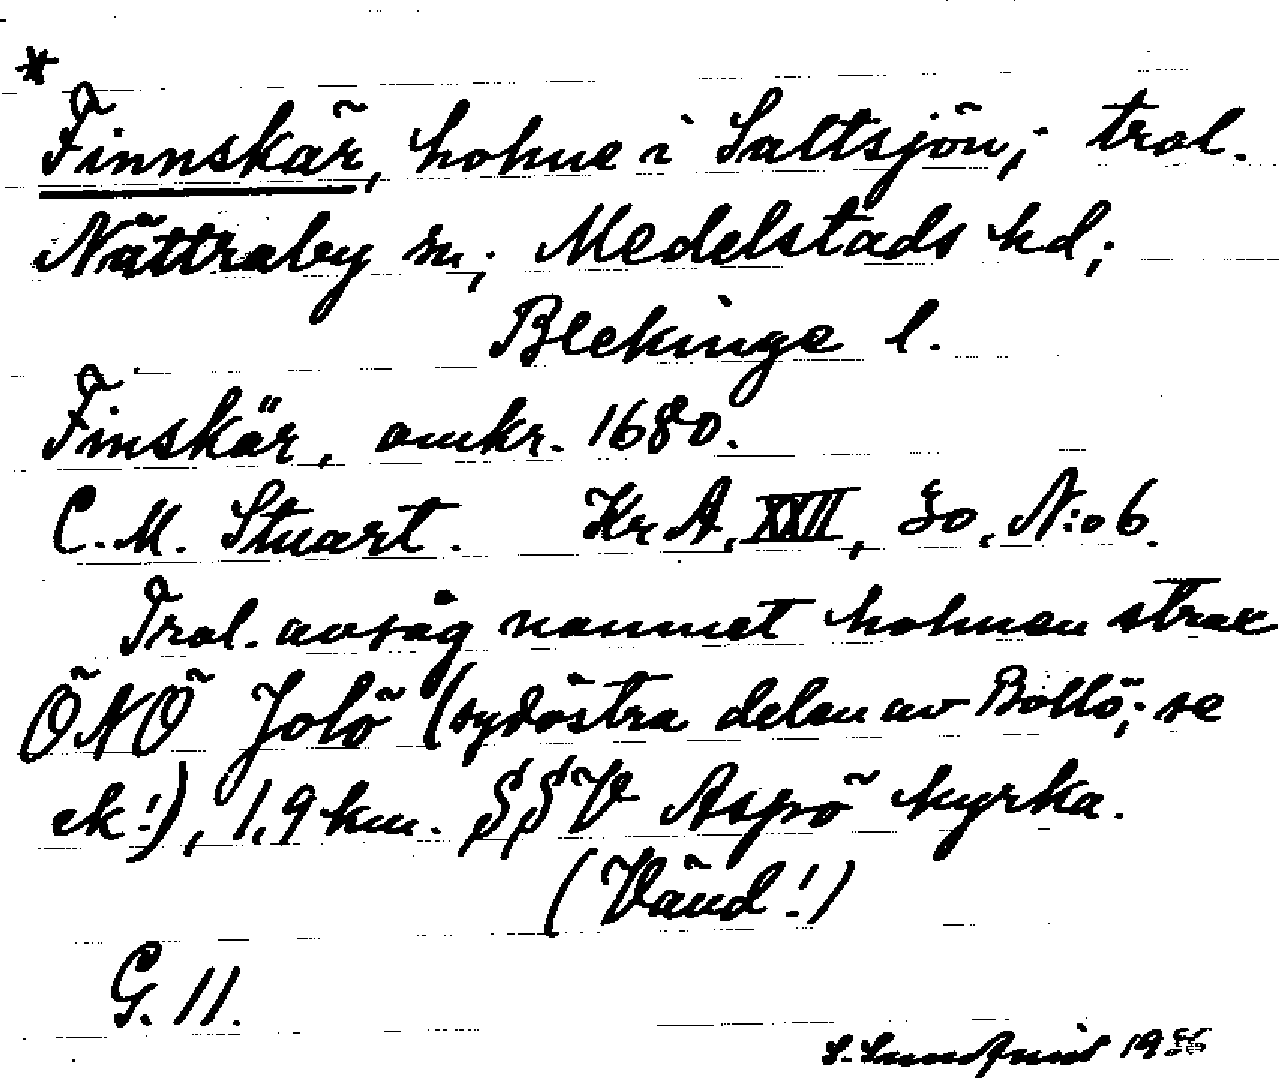 *
Finnskär, holme i Saltsjön; trol.
Nättraby sn; Medelstads hd;
Blekinge l.
Finskär, omkr. 1680.
C.M. Stuart. Kr A, XXII, 30, N:o 6.
Trol. avsåg namnet holmen strax
ÖNÖ Jolö (sydöstra delen av Bollö; se
ek!), 1,9 km. SSV Aspö kyrka.
(Vänd!)
G. 11.
S. Sundqvist 19